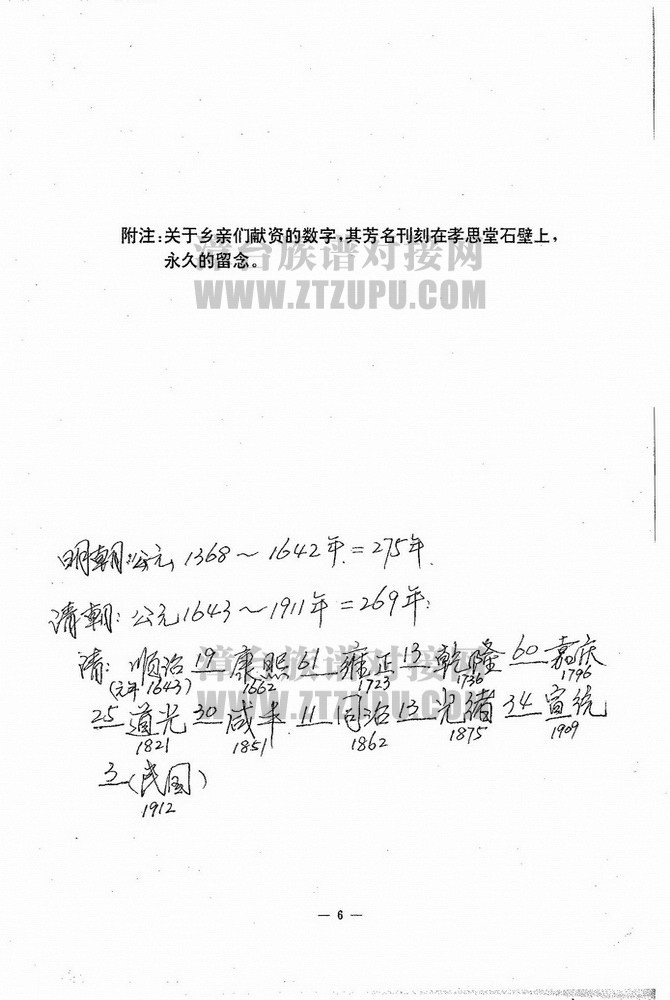 附注:关于乡亲们献资的数字,其芳名刊刻在孝思堂石壁上,
永久的留念。
漳台族谱对接网
WWW.ZTZUPU.COM
明朝:公元 1368～1642年.=275年.
清朝:公元1643～1911年=269年:
清: 顺治 19 康熙 61 雍正 13 乾隆 60 嘉庆
(元年1643) 1662 1723 1736 1796
漳台族谱对接网
WWW.ZTZUPU.COM
25 道光 30 咸丰 11 同治 13 光绪 34 宣统
1821 1851 1862 1875 1909
3 (民国)
1912
— 6 —